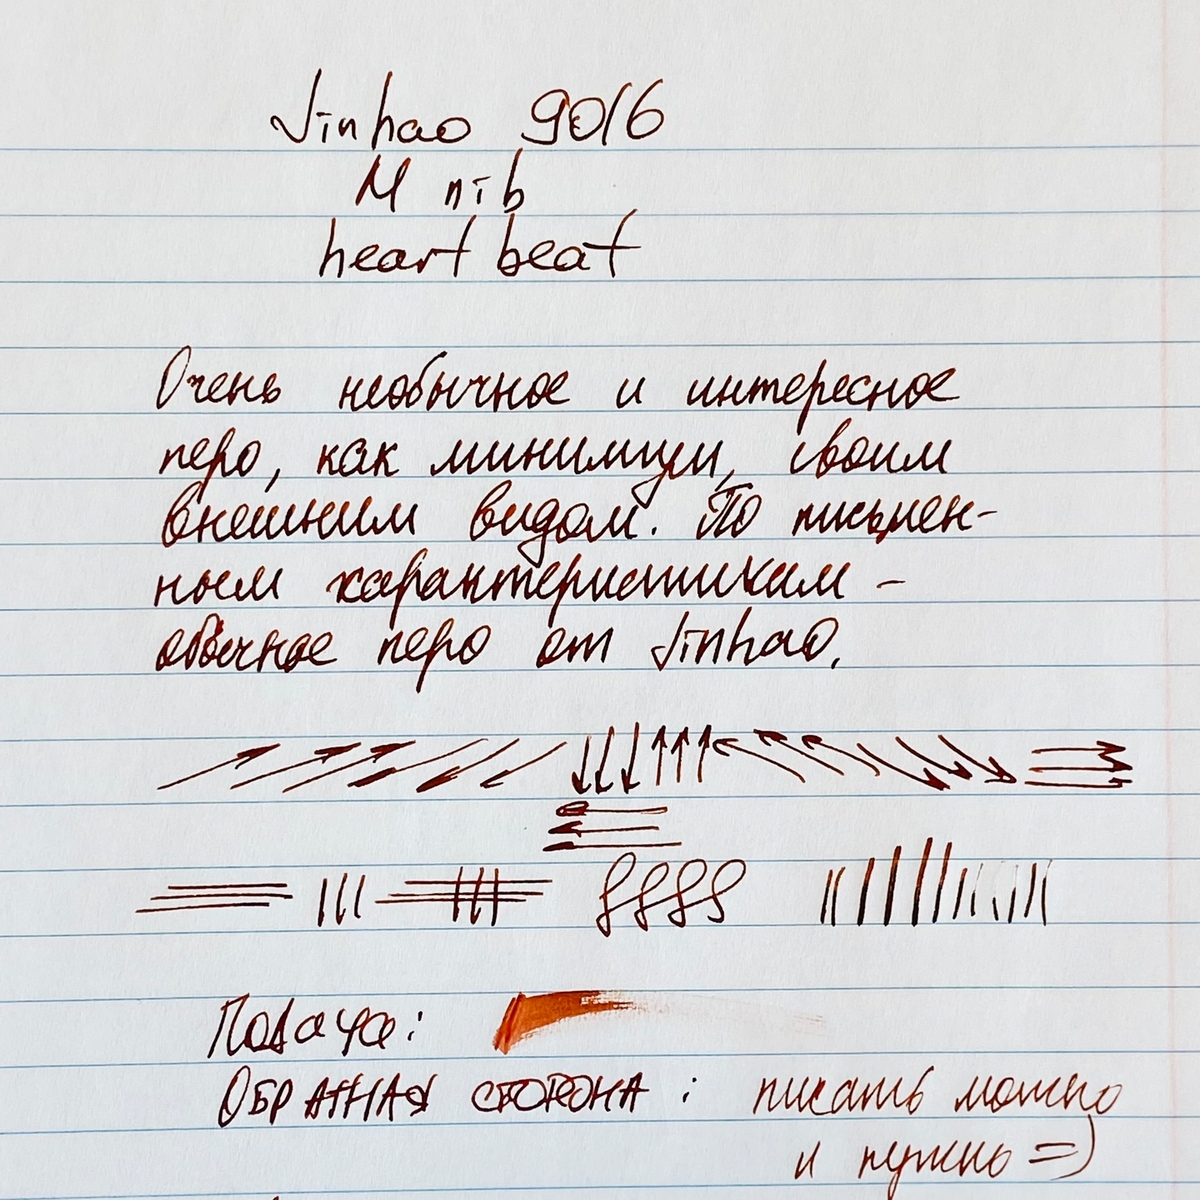 Jinhao 9016
M nib
heart beat
Очень необычное и интересное
перо, как минимум, своим
внешним видом. По письмен-
ным характеристикам -
обычное перо от Jinhao.
Подача:
ОБРАТНАЯ СТОРОНА : писать можно
и нужно =)